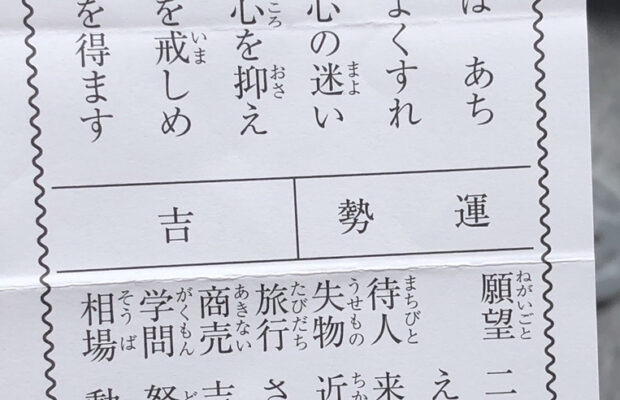 は あち
よくすれ
心の迷い
心を抑え
を戒しめ
を得ます
運勢
吉
願望 二
え
待人 来
失物 近
旅行 さ
商売 吉
学問 努
相場